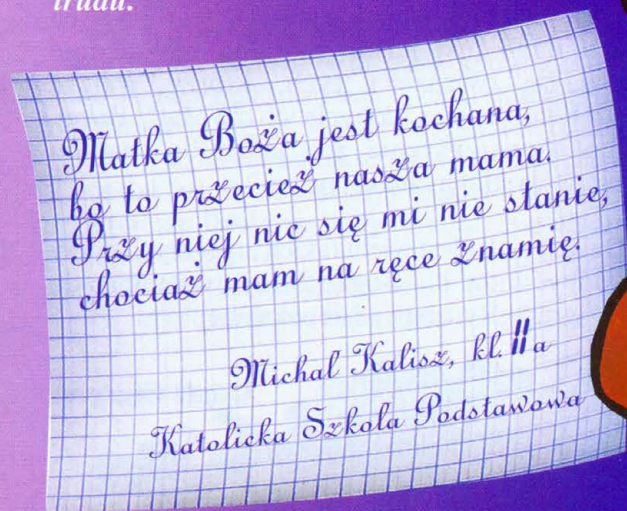 trudu.
Matka Boża jest kochana,
bo to przecież nasza mama.
Przy niej nic się mi nie stanie,
chociaż mam na ręce znamię.
Michal Kalisz, kl. IIa
Katolicka Szkola Podstawowa